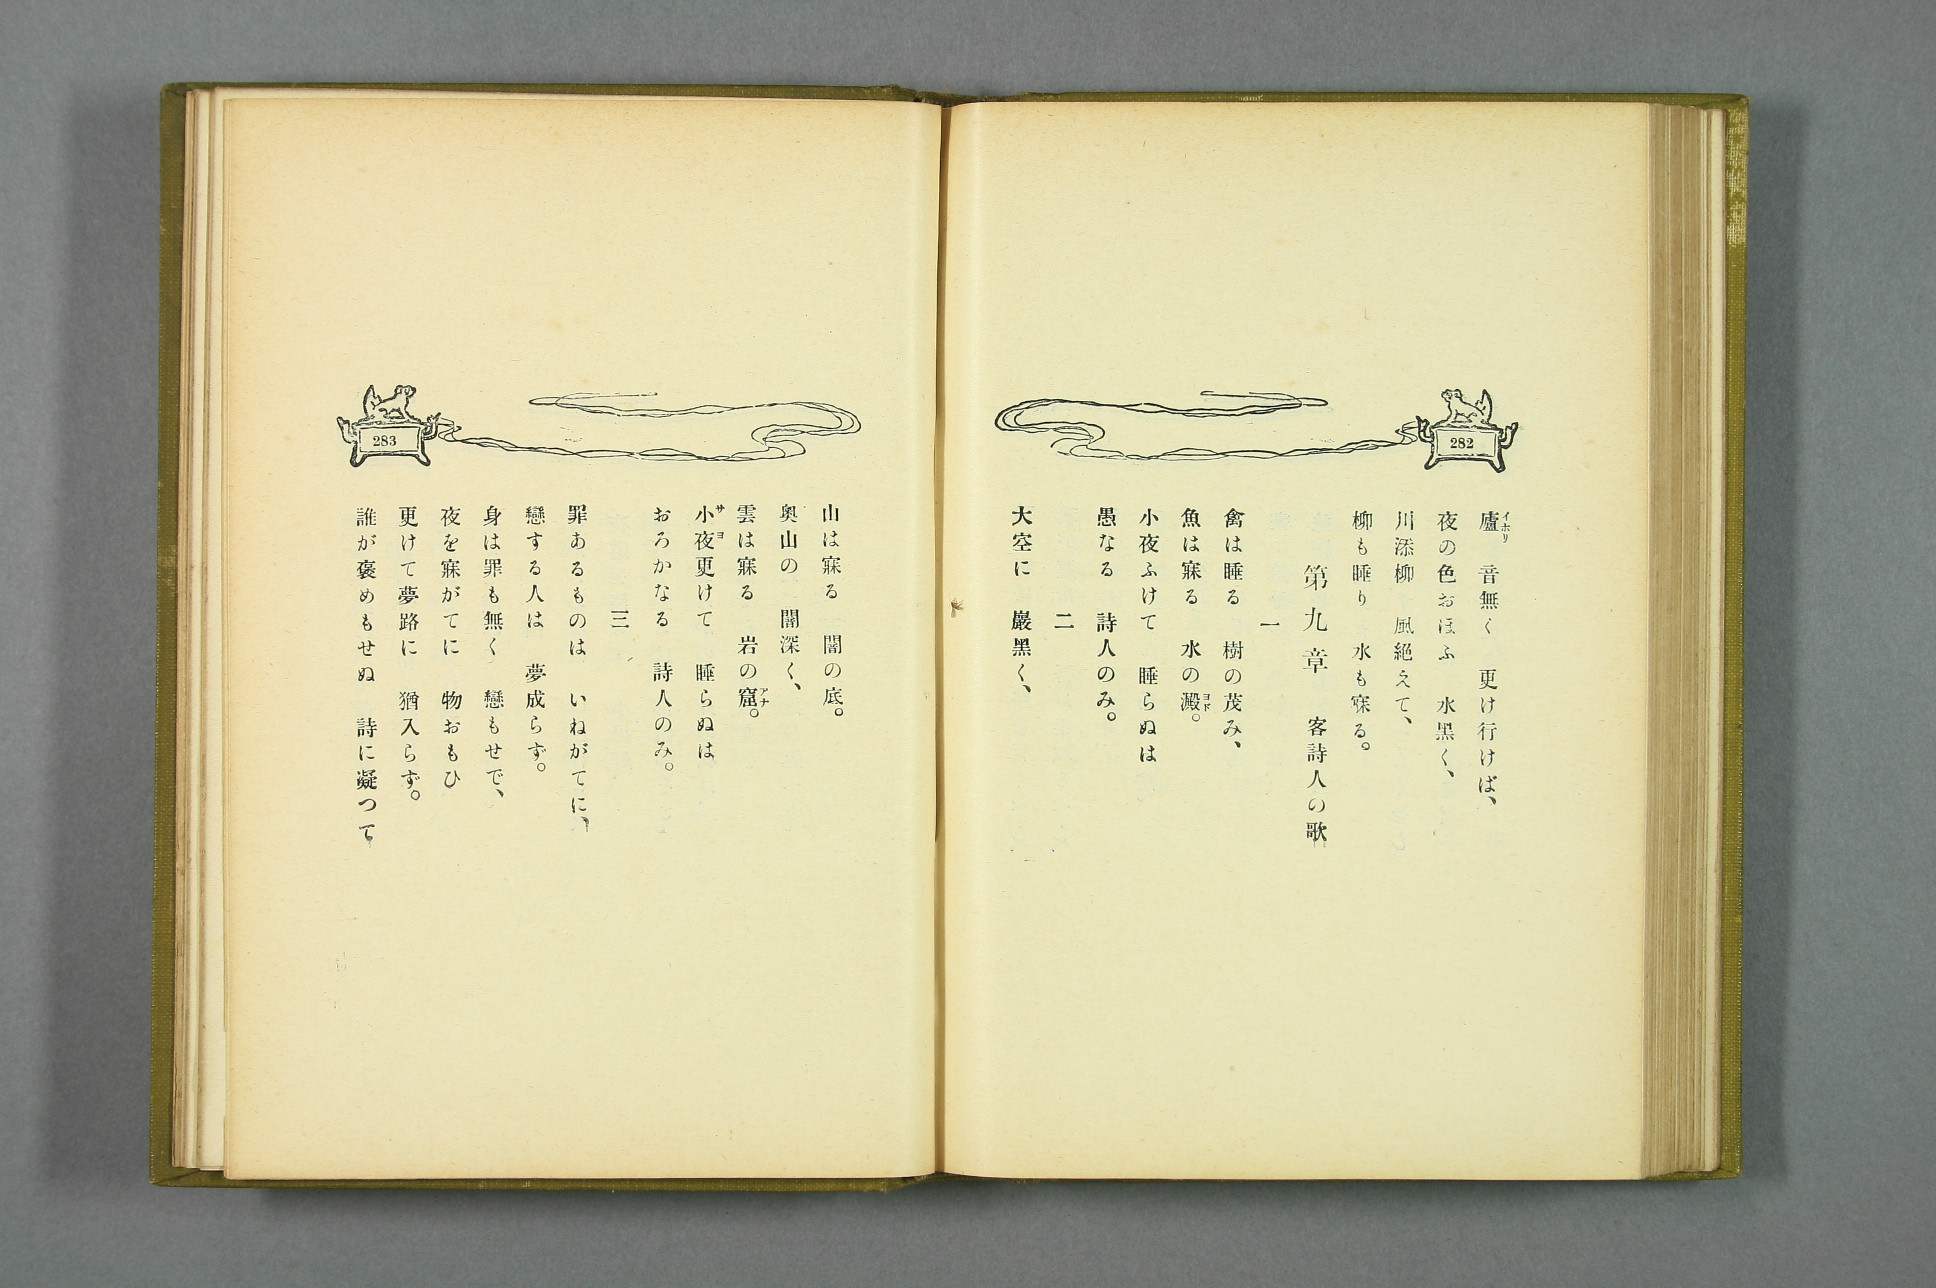 282
廬 音無く 更け行けば、
イホリ
夜の色おほふ 水黑く、
川添柳 風絕えて、
柳も睡り 水も寐る。
第九章 客詩人の歌
一
禽は睡る 樹の茂み、
魚は寐る 水の澱。
ヨド
小夜ふけて 睡らぬは
愚なる 詩人のみ。
二
大空に 巖黑く、
283
山は寐る 闇の底。
奥山の 闇深く、
雲は寐る 岩の窟。
アナ
小夜更けて 睡らぬは
サヨ
おろかなる 詩人のみ。
三
罪あるものは いねがてに、
戀する人は 夢成らず。
身は罪も無く 戀もせで、
夜を寐がてに 物おもひ
更けて夢路に 猶入らず。
誰が褒めもせぬ 詩に凝つて